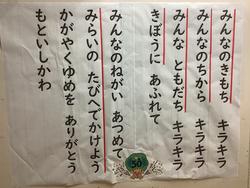 みんなのきもち キラキラ
みんなのちから キラキラ
みんな ともだち キラキラ
きぼうに あふれて
みんなのねがい あつめて
みらいの たびへでかけよう
かがやくゆめを ありがとう
もといしかわ
50